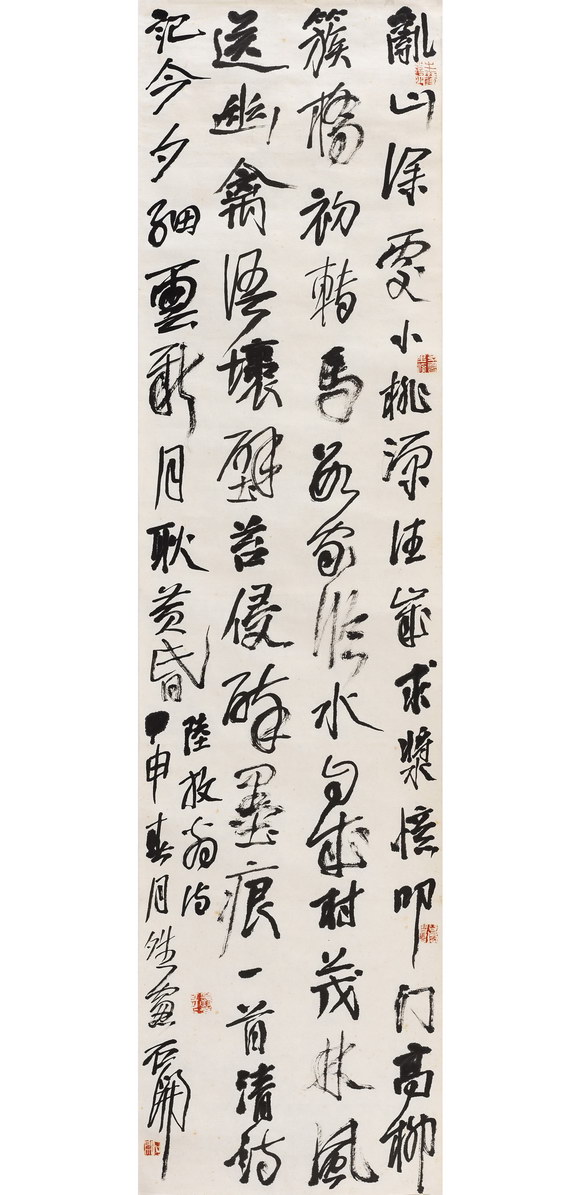 亂山深處小桃源往歲求漿憶叩门高柳
簇橋初轉馬數家臨水自成村茂林風
送幽禽語壞壁苔侵醉墨痕一首清詩
記今夕細雲新月耿黃昏
陸放翁詩
甲申春月石開